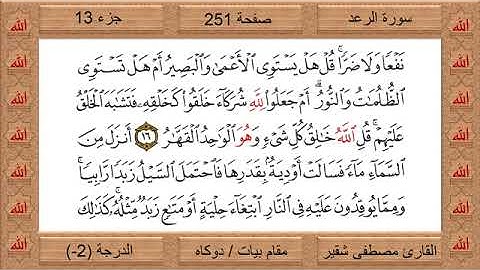 سورة الرعد صفحة 251 جزء 13
نَفْعًا وَلَا ضَرًّا ۚ قُلْ هَلْ يَسْتَوِى الْأَعْمَىٰ وَالْبَصِيرُ أَمْ هَلْ تَسْتَوِى
الظُّلُمَٰتُ وَالنُّورُ ۗ أَمْ جَعَلُوا لِلَّهِ شُرَكَاءَ خَلَقُوا كَخَلْقِهِ فَتَشَٰبَهَ الْخَلْقُ
عَلَيْهِمْ ۚ قُلِ اللَّهُ خَٰلِقُ كُلِّ شَىْءٍ وَهُوَ الْوَٰحِدُ الْقَهَّٰرُ ١٦ أَنزَلَ مِنَ
السَّمَاءِ مَاءً فَسَالَتْ أَوْدِيَةٌ بِقَدَرِهَا فَاحْتَمَلَ السَّيْلُ زَبَدًا رَّابِيًا ۚ
وَمِمَّا يُوقِدُونَ عَلَيْهِ فِى النَّارِ ابْتِغَاءَ حِلْيَةٍ أَوْ مَتَٰعٍ زَبَدٌ مِّثْلُهُ ۚ كَذَٰلِكَ
القارئ مصطفى شقير مقام بيات / دوكاه الدرجة (2-)
الله
الله
الله
الله
الله
الله
الله
الله
الله
الله
الله
الله
الله
الله